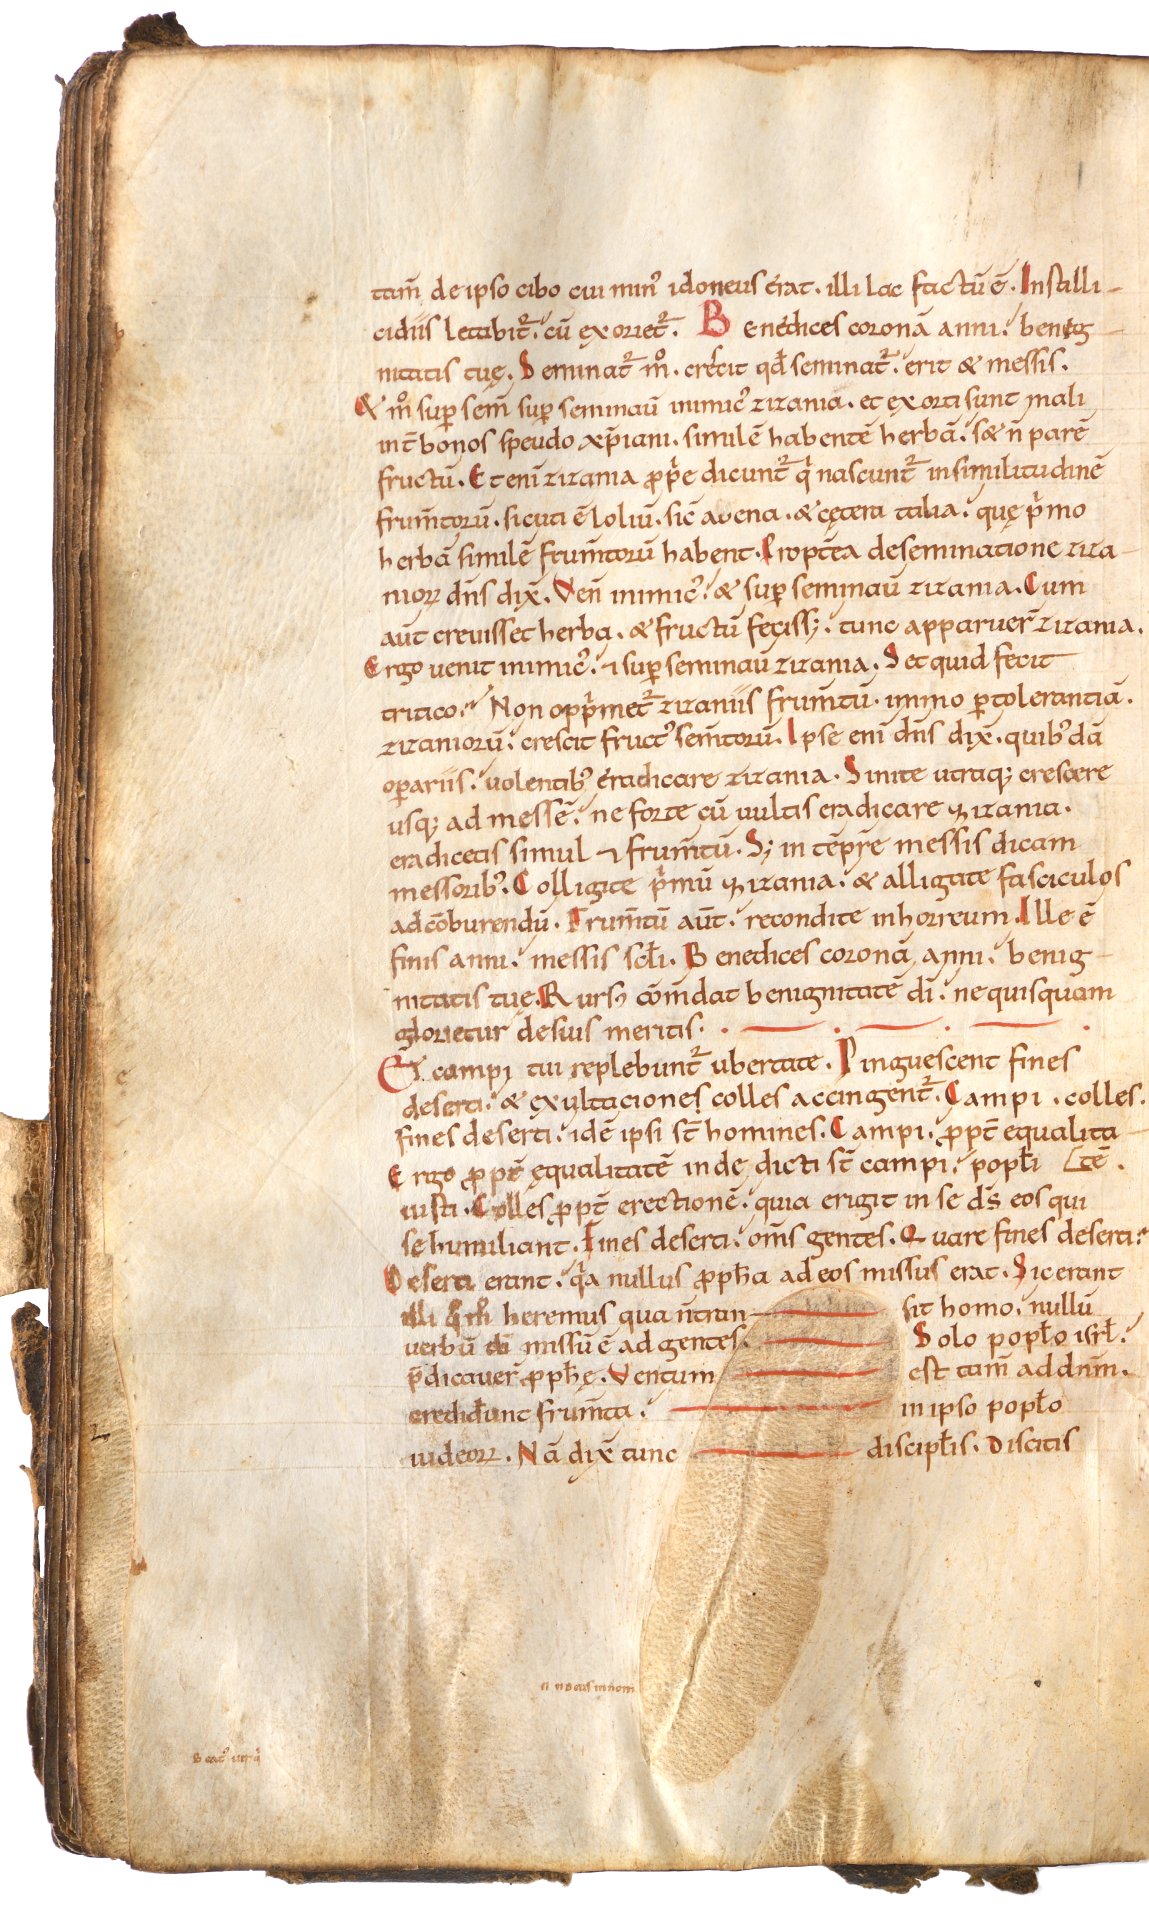 tam̄ de ipso cibo cui min᾽ idoneus erat. illi lac factū ē. Instilli-
cidiis letabit᷑. cū exoriet᷑. Benedices coronā anni. benig-
nitatis tuę. Seminat᷑ m̊. crescit qđ seminat᷑. erit & messis.
& m̊ sup̱ sem̄ sup̱ seminau̅ inimic᾽ zizania. et exorti sunt mali
int̄ bonos speudo xp̄iani. similē habentē herbā. sed n̄ parē
fructū. Et eni̅ zizania ꝓp̍e dicunt᷑ q̍ nascunt᷑ in similitudinē
frum̄torū. sicuti ē loliū. sic̄ avena. & cętera talia. quę p̍mo
herbā similē frum̄torū habent. Propt̄ea deseminatione ziza-
nioꝝ dn̄s dix̄. Ven̄ inimic᾽. & sup̱ seminau̅ zizania. Cum
aūt crevisset herba. & fructū feciss&. tunc apparuer̄ zizania.
Ergo venit inimic᾽. ⁊ sup̱ seminau̅ zizania. Set quid fecit
tritico? Non opp̍met᷑ zizaniis frum̄tū. immo ꝑ tolerantiā.
zizaniorū. crescit fruct᾽ frum̄torū. Ipse eni̅ dn̄s dix̄. quib᾽dā
oꝑariis. volentib᾽ eradicare zizania. Sinite utraq; crescere
usq; ad messē. ne forte cū vultis eradicare zizania.
eradicetis simul ⁊ frum̄tū. S; in tēp̱re messis dicam
messorib᾽. Colligite p̍mū zizania. & alligate fasciculos
ad cōburendū. Frum̄tū aūt. recondite in horreum. Ille ē
finis anni. messis scłi. Benedices coronā anni. benig-
nitatis tuę. Rurs᾽ cōm̄dat benignitatē dī. ne quisquam
glorietur de suis meritis.
Et campi tui replebunt᷑ ubertate. Pinguescent fines
deserti. & exultaciones colles accingent᷑. Campi. colles.
fines deserti. idē ipsi st̄ homines. Campi. ꝓpt̄ equalita-
Ergo ꝓpt̄ ęqualitatē inde dicti st̄ campi. popłi tē.
iusti. Colles ꝓpt̄ erectionē. quia erigit in se ds̄ eos qui
se humiliant. Fines deserti. om̄s gentes. Quare fines deserti?
Deserti erant. q̍a nullus ꝓpħa ad eos missus erat. Sic erant
illi q̍ m̊ heremus qua n̄ tran sit homo. nullū
verbū di̅ missū ē ad gentes. Solo popło isrł.
p̄dicaver̄ ꝓpħę. Ventum est tam̄ ad dn̄m.
credider̄unt frum̄ta. in ipso popło
iudeoꝝ. Nā dix̄ tunc discipłis. Dicitis